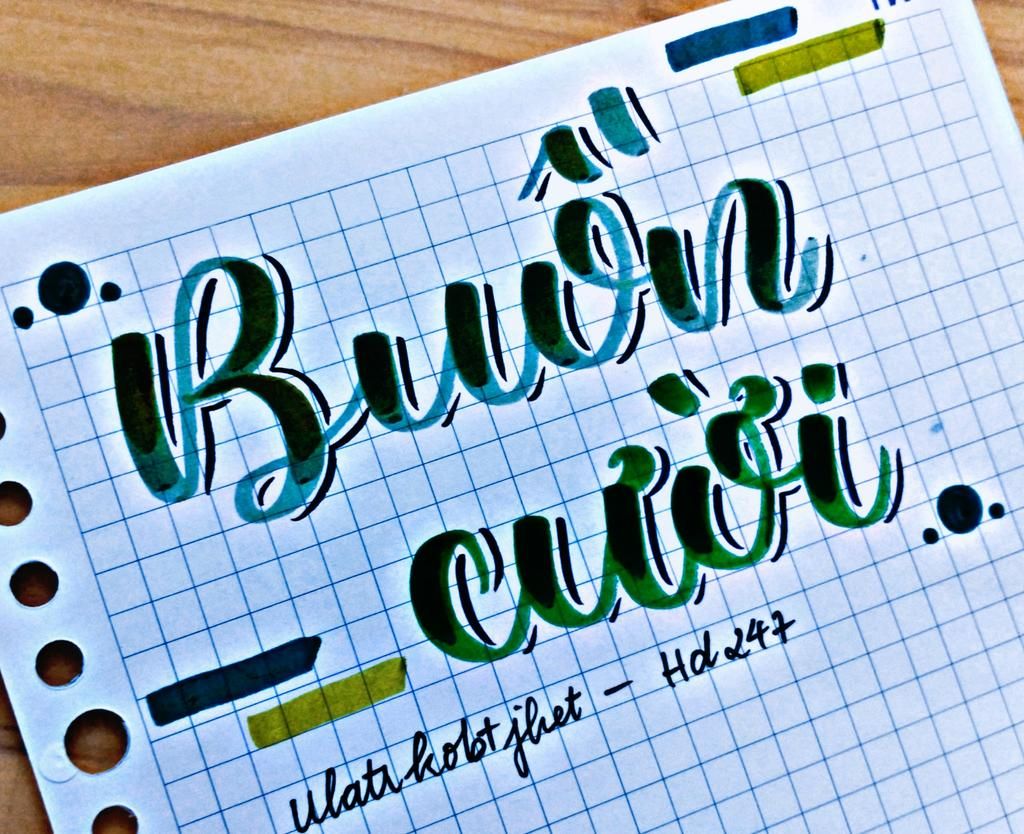 Buồn
cười
ulatukobtjhet - Hd247